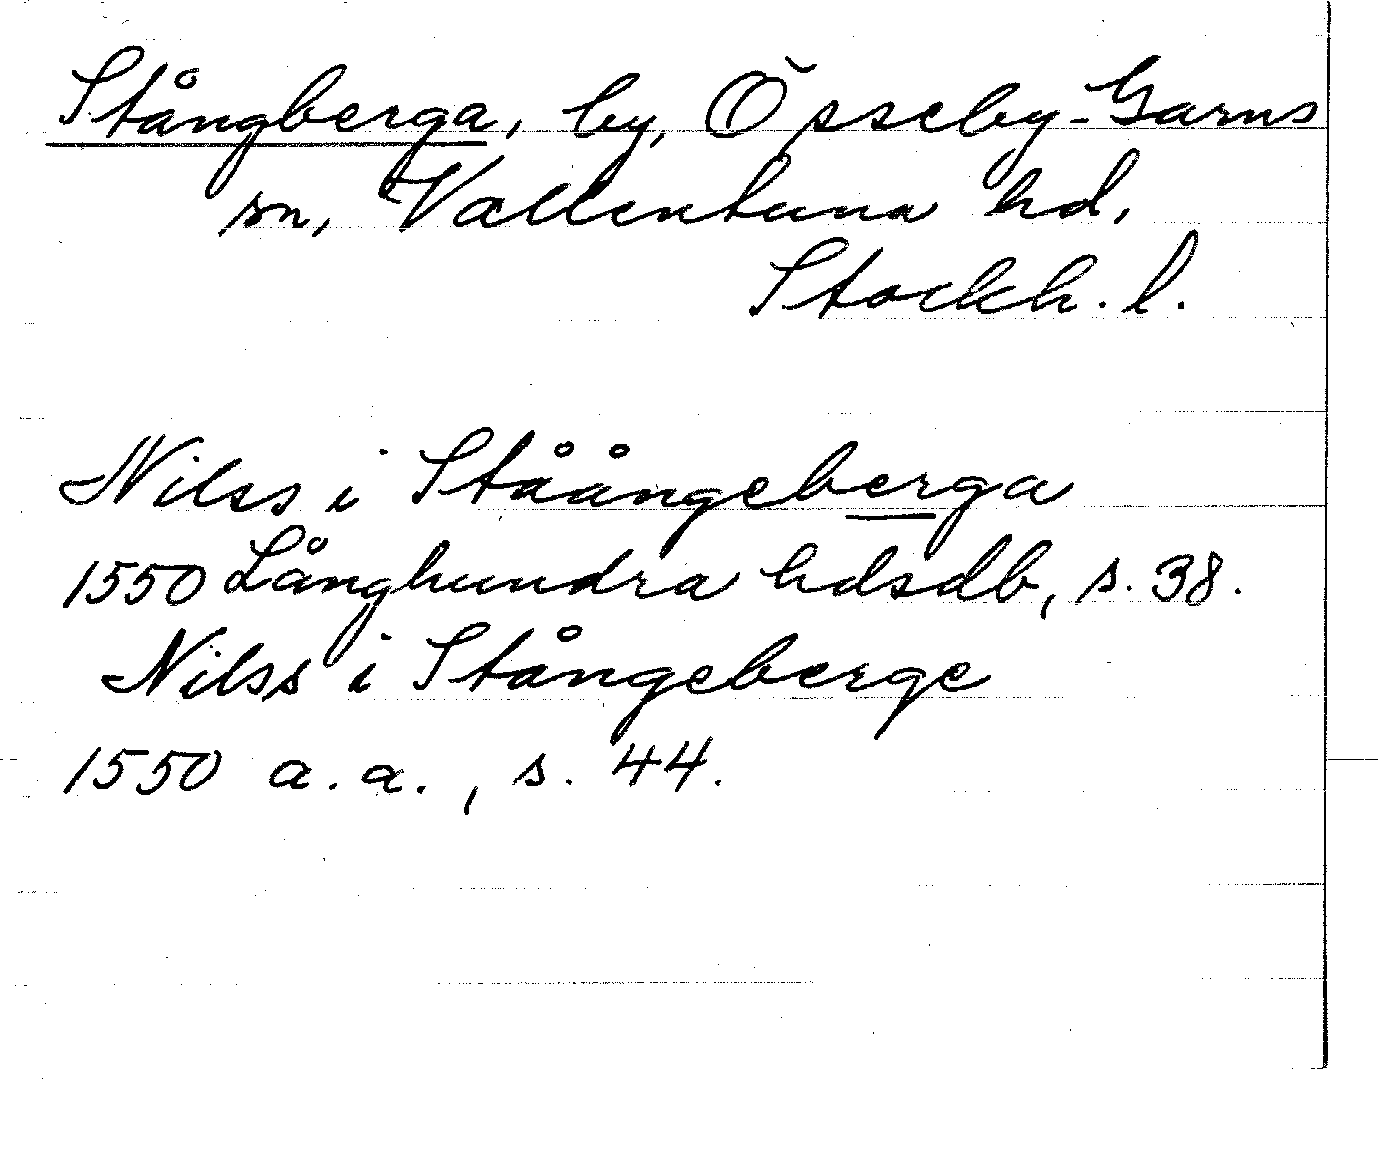 Stångberga, by, Össeby-Garns
sn, Vallentuna hd,
Stockh. l.
Nilss i Ståångeberga
1550 Långhundra hdsdb, s. 38.
Nilss i Stångeberge
1550 a. a., s. 44.